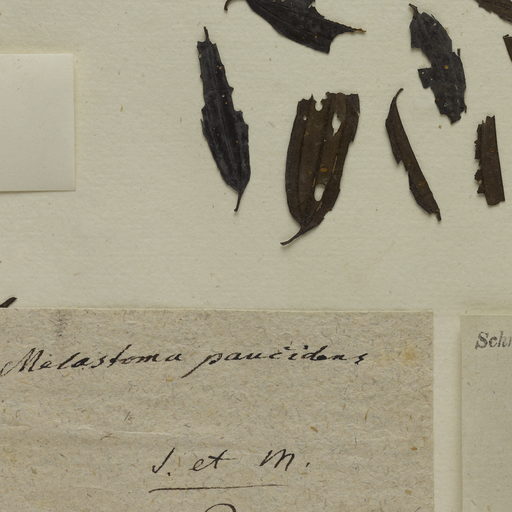 Melastoma paucidens
S. et M.